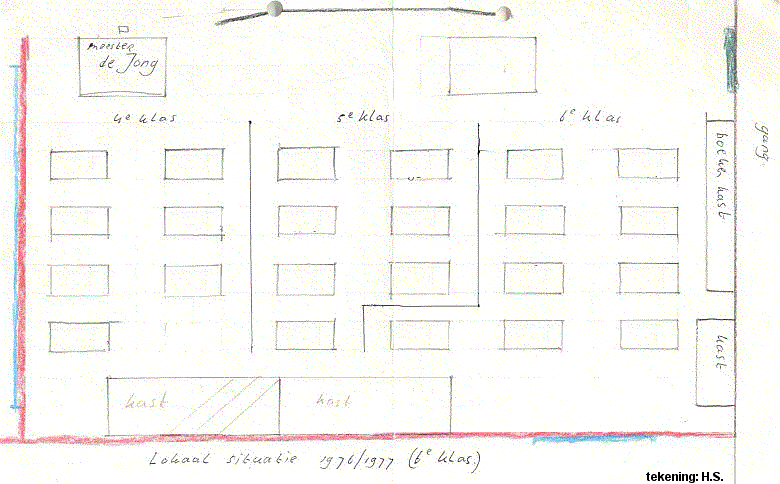 meester
de Jong
4e klas
5e klas
6e klas
gang
boeken kast
kast
kast
kast
Lokaal situatie 1976/1977 (6e klas.)
tekening: H.S.